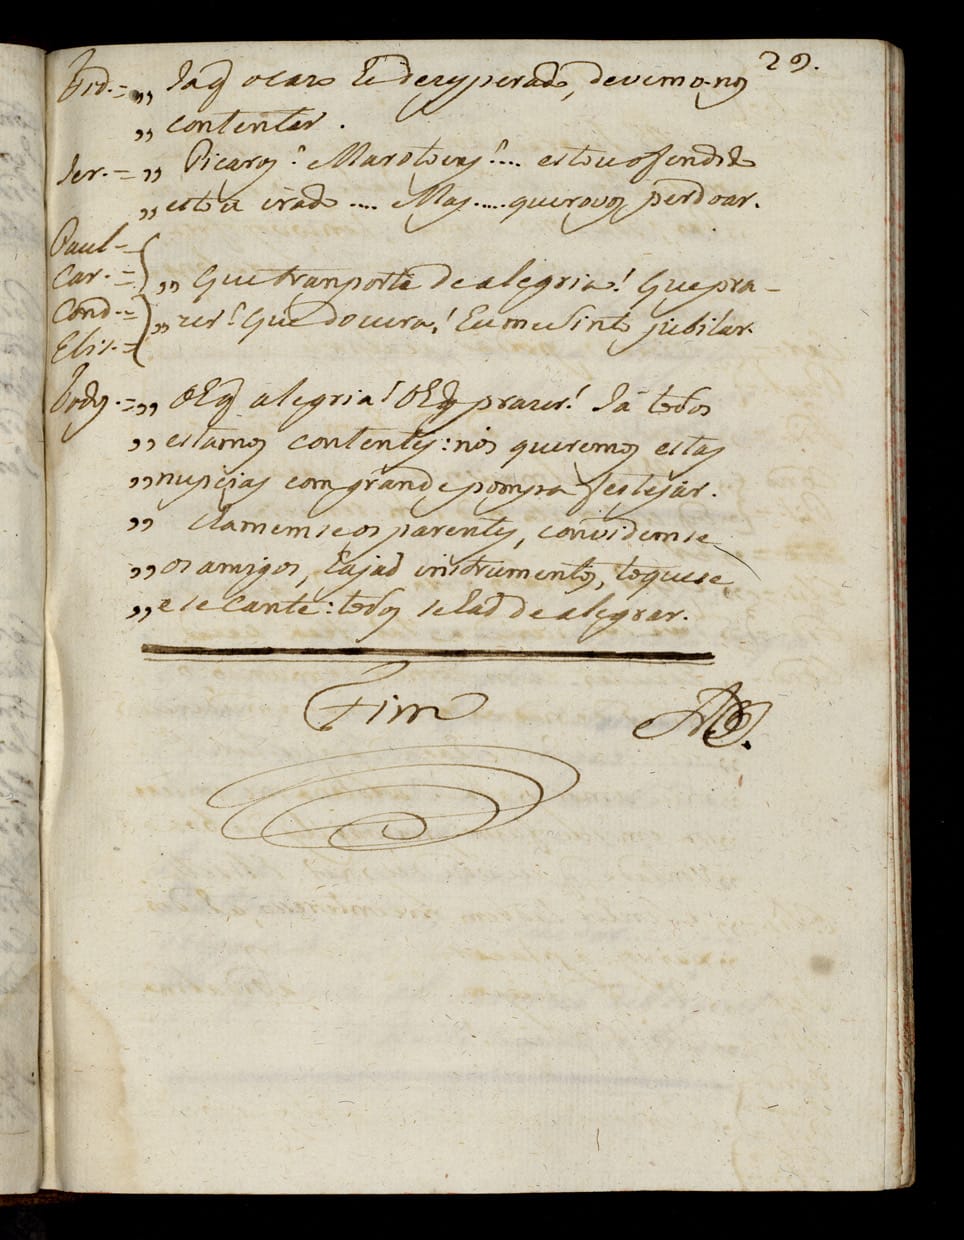 29.
Fid. = „ Ja q̃ o cazo he dezesperado, devemo-nos
„ contenter.
Ser. = „ Picaros! Marotoens!.... estou ofendido
„ estou irado .... Mas .... querovos perdoar.
Paul =
Car. = „ Que tranporte de alegria! Que pra-
Cond. = „ zer! Que docura! Eu me sinto jubilar.
Elis. =
Todos. = „ Oh q̃ alegria! Oh q̃ prazer! Já todos
„ estamos contentes: nós queremos estas
„ nupcias com grande pompa festejar.
„ Clamemse os parentes, convidemse
„ os amigos, hajaõ instrumentos, toquese
„ e se cante: todos se haõ de alegrar.
Fim